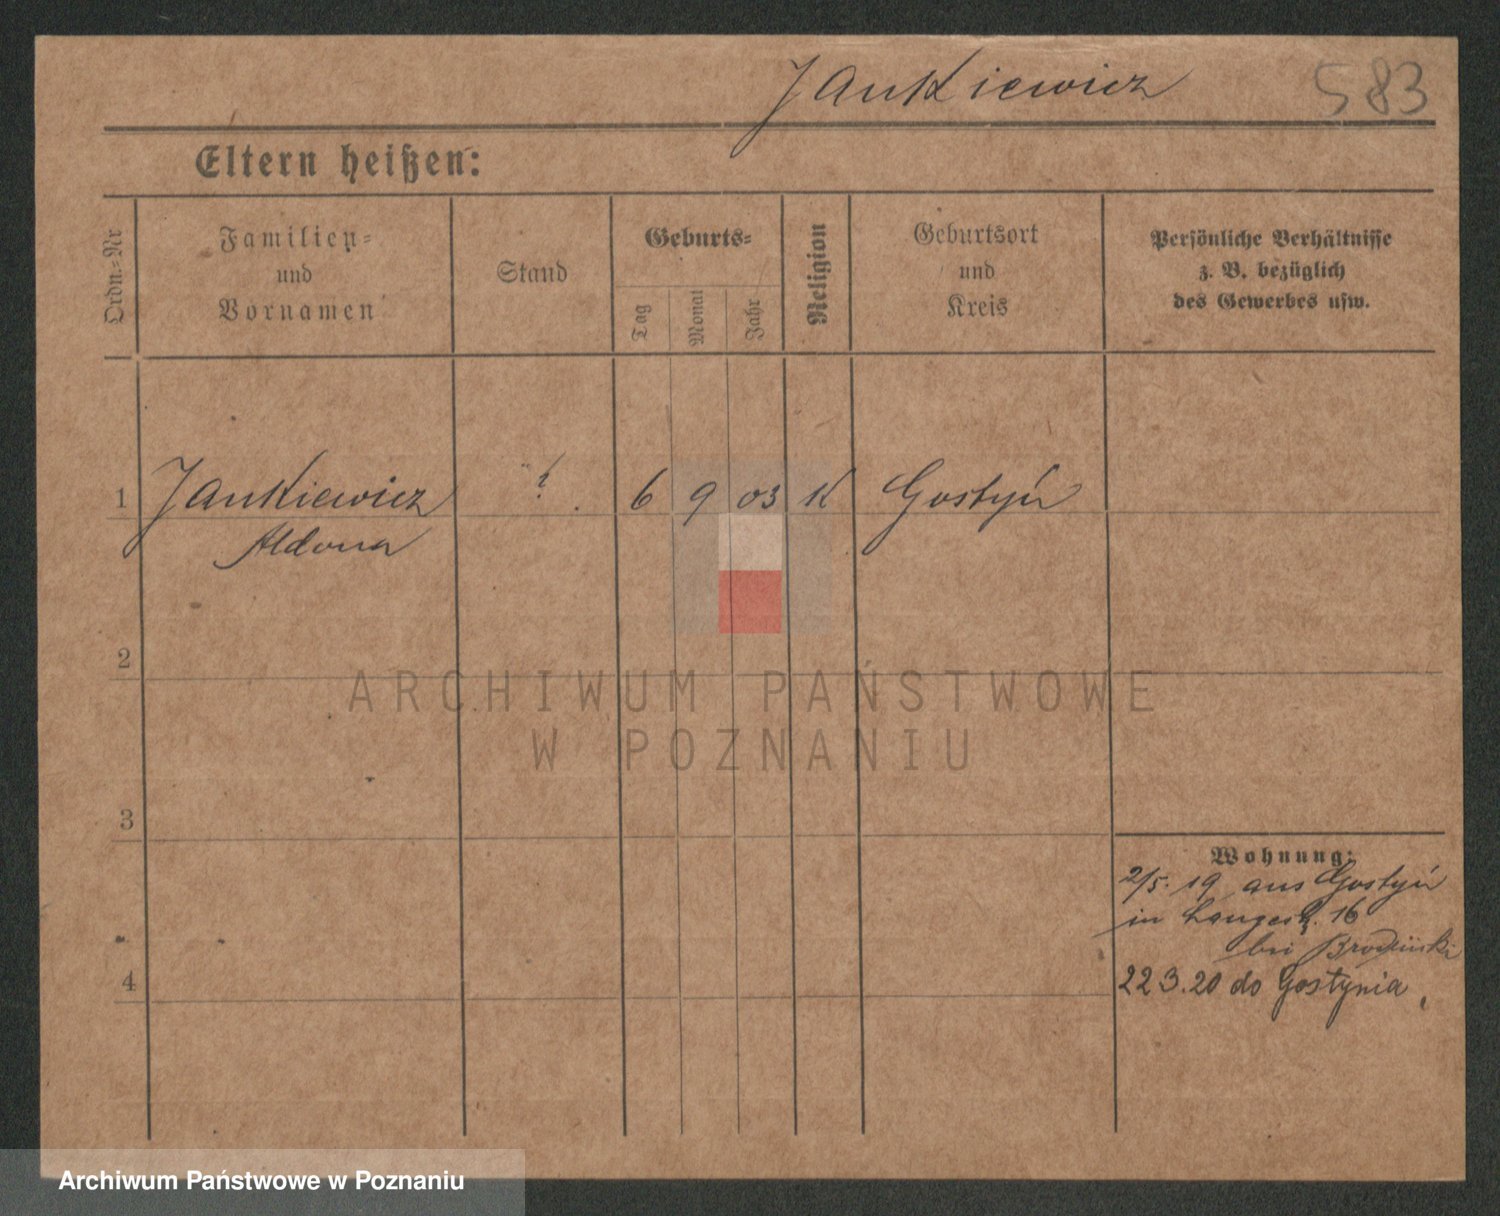 Jankiewicz 583
Eltern heißen:
Ordn.-Nr
Familien-
und
Vornamen
Stand
Geburts-
Tag
Monat
Jahr
Religion
Geburtsort
und
Kreis
Persönliche Verhältnisse
z. B. bezüglich
des Gewerbes usw.
1 Jankiewicz 6 9 03 K Gostyń
Aldona
2
3
4
Wohnung:
2/5. 19 aus Gostyń
in Langestr. 16
bei
22 3.20 do Gostynia
ARCHIWUM PAŃSTWOWE
W POZNANIU
Archiwum Państwowe w Poznaniu